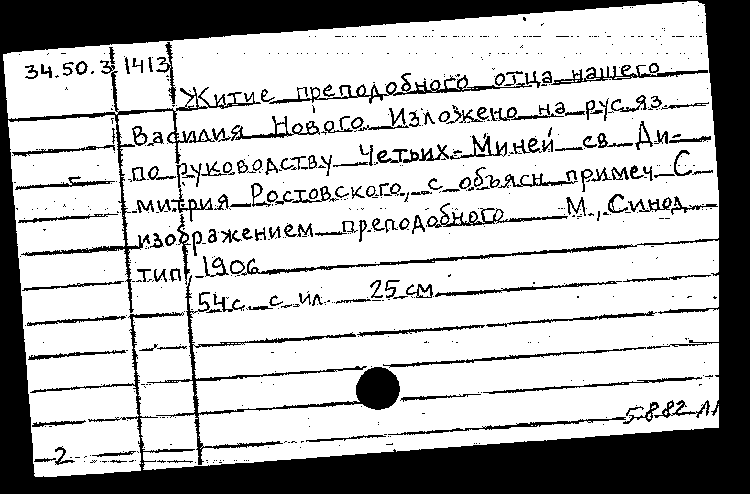 34.50.3 1413
Житие преподобного отца нашего
Василия Нового. Изложено на рус. яз.
по руководству Четьих-Миней св. Ди-
митрия Ростовского, с объясн. примеч. С
изображением преподобного М., Синод.
тип., 1906
54 с. с ил. 25 см.
5.8.82
2